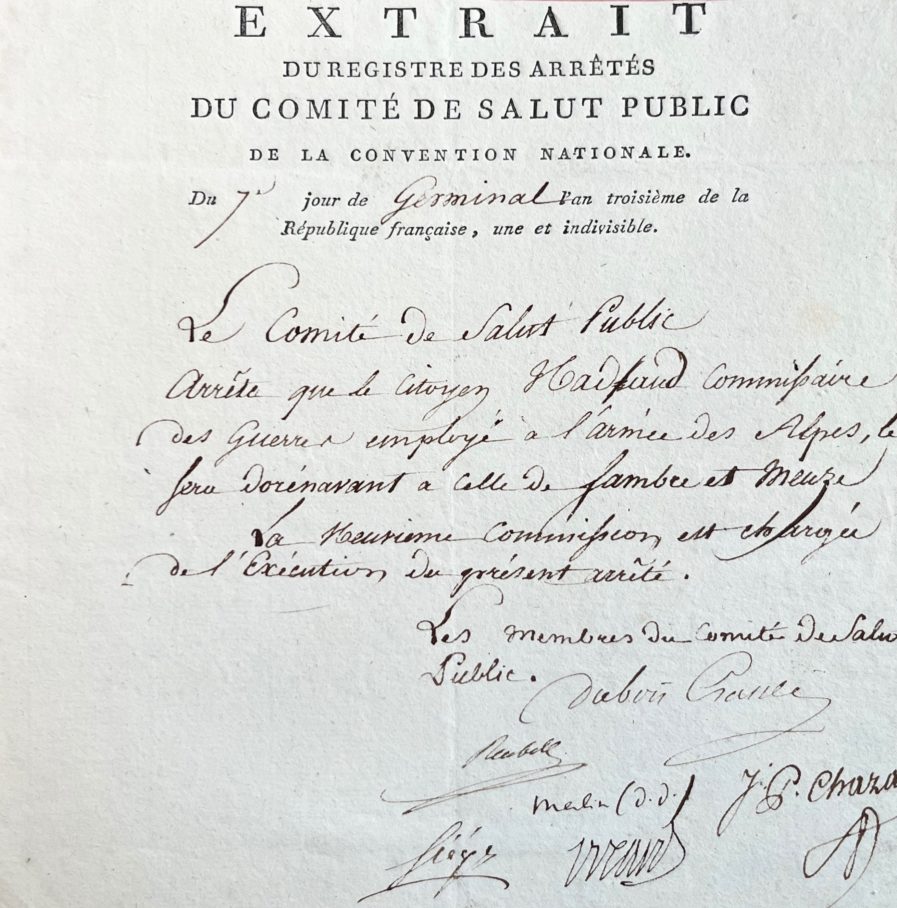 EXTRAIT
DU REGISTRE DES ARRÊTÉS
DU COMITÉ DE SALUT PUBLIC
DE LA CONVENTION NATIONALE.
Du 7e jour de Germinal l'an troisième de la
République française, une et indivisible.
Le Comité de Salut Public
Arrête que le Citoyen commissaire
des Guerres employé à l'armée des Alpes, le
sera dorénavant a celle de Sambre et Meuze
La Neuvieme Commission est chargée
de l'Exécution du présent arrêté.
Les membres du Comité de Salu
Public.
Dubois Crancé
Reubell
Merlin (d.d.)
J. P. Chaza
Siéyes